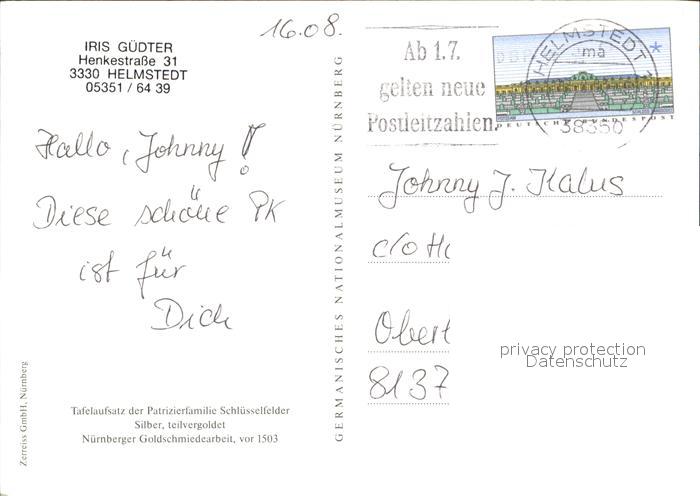 16.08.
IRIS GÜDTER
Henkestraße 31
3330 HELMSTEDT
05351 / 64 39
Hallo, Johnny!
Diese schöne PK
ist für
Dich
Zerreiss GmbH, Nürnberg
Tafelaufsatz der Patrizierfamilie Schlüsselfelder
Silber, teilvergoldet
Nürnberger Goldschmiedearbeit, vor 1503
GERMANISCHES NATIONALMUSEUM NÜRNBERG
Ab 1.7.
gelten neue
Postleitzahlen.
HELMSTEDT 1
ma
38350
DEUTSCHE BUNDESPOST
Johnny J. Kalus
c/o
Obert
8137
privacy protection
Datenschutz